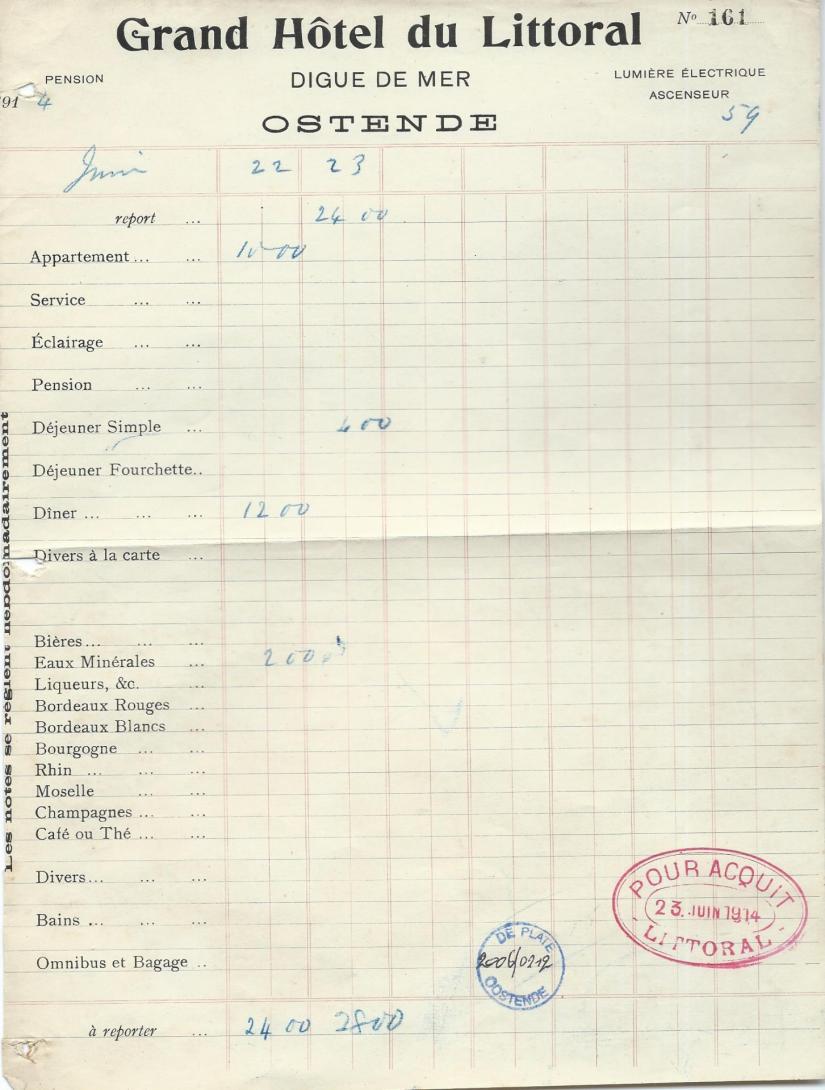 Grand Hôtel du Littoral Nº 161
PENSION DIGUE DE MER LUMIÈRE ÉLECTRIQUE
ASCENSEUR
191 4
OSTENDE 59
Juin 22 23
report ... 24 00
Appartement ... ... 10 00
Service ... ...
Éclairage ... ...
Pension ... ...
Déjeuner Simple ... 4 00
Déjeuner Fourchette..
Dîner ... ... ... 12 00
Divers à la carte ...
Bières ... ... ...
Eaux Minérales ... 2 00
Liqueurs, &c. ...
Bordeaux Rouges ...
Bordeaux Blancs ...
Bourgogne ... ...
Rhin ... ... ...
Moselle ... ...
Champagnes ... ...
Café ou Thé ... ...
Divers ... ... ...
Bains ... ... ...
Omnibus et Bagage ..
à reporter ... 24 00 28 00
Les notes se règlent hebdomadairement
POUR ACQUIT
23. JUIN 1914
LITTORAL
DE PLATE
2006/0212
OOSTENDE